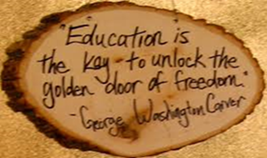 "Education is
the key to unlock the
golden door of freedom."
- George Washington Carver